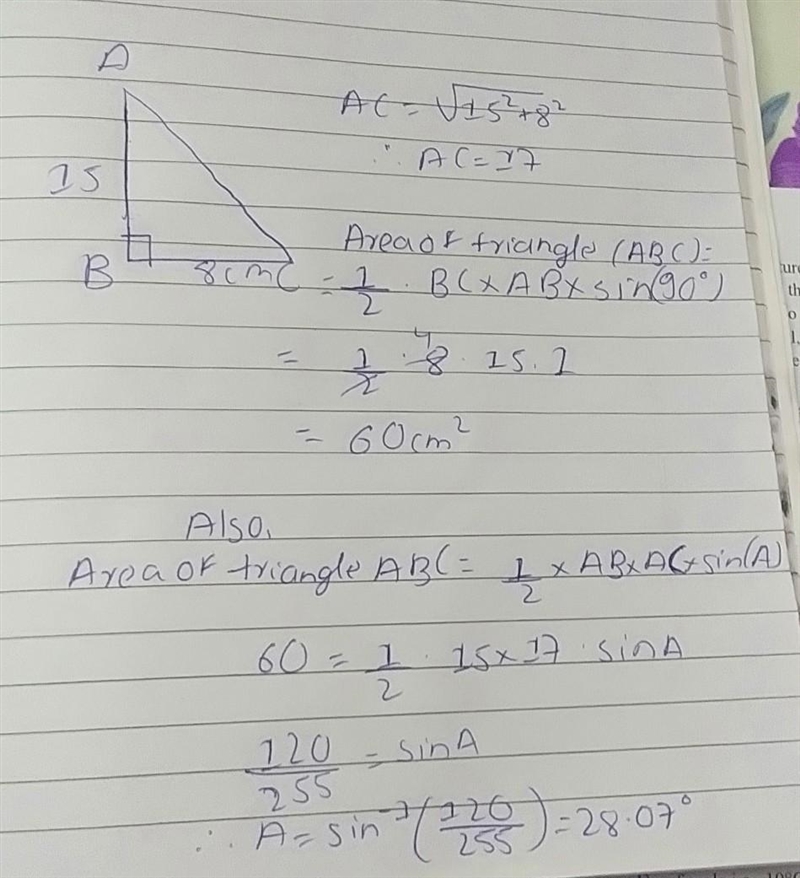 A
AC = √15²+8²
∴ AC = 17
15
Area of triangle (ABC):
B 8cm C = 1/2 · BC × AB × sin(90°)
= 1/2 · 8 4 · 15 · 1
= 60cm²
Also,
Area of triangle ABC = 1/2 × AB × AC × sin(A)
60 = 1/2 · 15 × 17 · sinA
120/255 = sinA
∴ A = sin⁻¹(120/255) = 28.07°